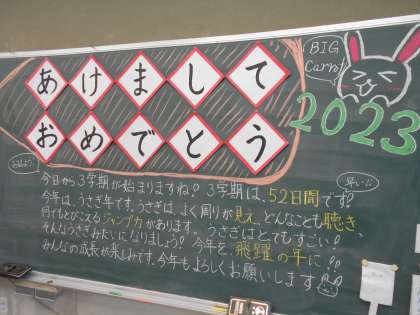 あけまして
おめでとう
BIG
Carrot
2023
おはよう!
早い!!
今日から3学期が始まりますね!3学期は、52日間です!
今年は、うさぎ年です。うさぎは、よく周りが見え、どんなことも聴き、
何でもとびこえるジャンプ力があります。うさぎはとてもすごい!!
そんなうさぎみたいになりましょう!今年を、飛躍の年に!!
みんなの成長が楽しみです。今年もよろしくお願いします